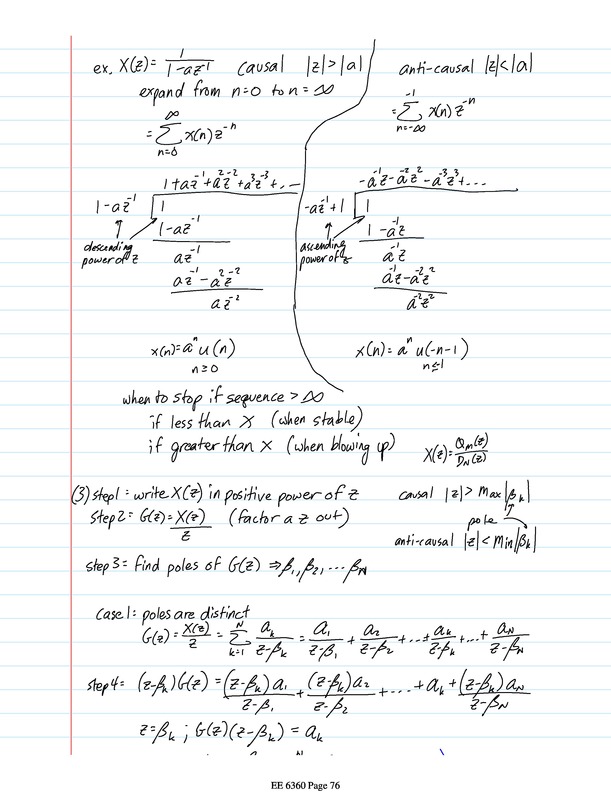 ex. X(z) = 1/(1-az⁻¹) causal |z|>|a|
expand from n=0 to n=∞
= ∑_{n=0}^{∞} x(n) z⁻ⁿ
1+az⁻¹+a²z⁻²+a³z⁻³+...
1-az⁻¹ | 1
1-az⁻¹
descending
power of z
az⁻¹
az⁻¹-a²z⁻²
az⁻²
x(n)=aⁿu(n)
n≥0
anti-causal |z|<|a|
= ∑_{n=-∞}^{-1} x(n) z⁻ⁿ
-a⁻¹z-a⁻²z²-a⁻³z³+...
-az⁻¹+1 | 1
1-a⁻¹z
ascending
power of z
a⁻¹z
a⁻¹z-a⁻²z²
a⁻²z²
x(n)=aⁿu(-n-1)
n≤-1
when to stop if sequence > ∞
if less than X (when stable)
if greater than X (when blowing up)
X(z)=Q_M(z)/D_N(z)
(3) step1: write X(z) in positive power of z
step2= G(z)=X(z)/z (factor a z out)
causal |z|>Max|β_k|
pole
anti-causal |z|<Min|β_k|
step3= find poles of G(z) ⇒β₁,β₂,...β_N
case1: poles are distinct
G(z)=X(z)/z=∑_{k=1}^{N} a_k/(z-β_k)=a₁/(z-β₁)+a₂/(z-β₂)+...+a_k/(z-β_k)+...+a_N/(z-β_N)
step4= (z-β_k)G(z)=(z-β_k)a₁/(z-β₁)+(z-β_k)a₂/(z-β₂)+...+a_k+(z-β_k)a_N/(z-β_N)
z=β_k ; G(z)(z-β_k)=a_k
EE 6360 Page 76